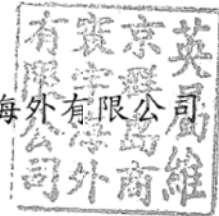 英屬維
京群島商
寰宇海外
有限公司
海外有限公司